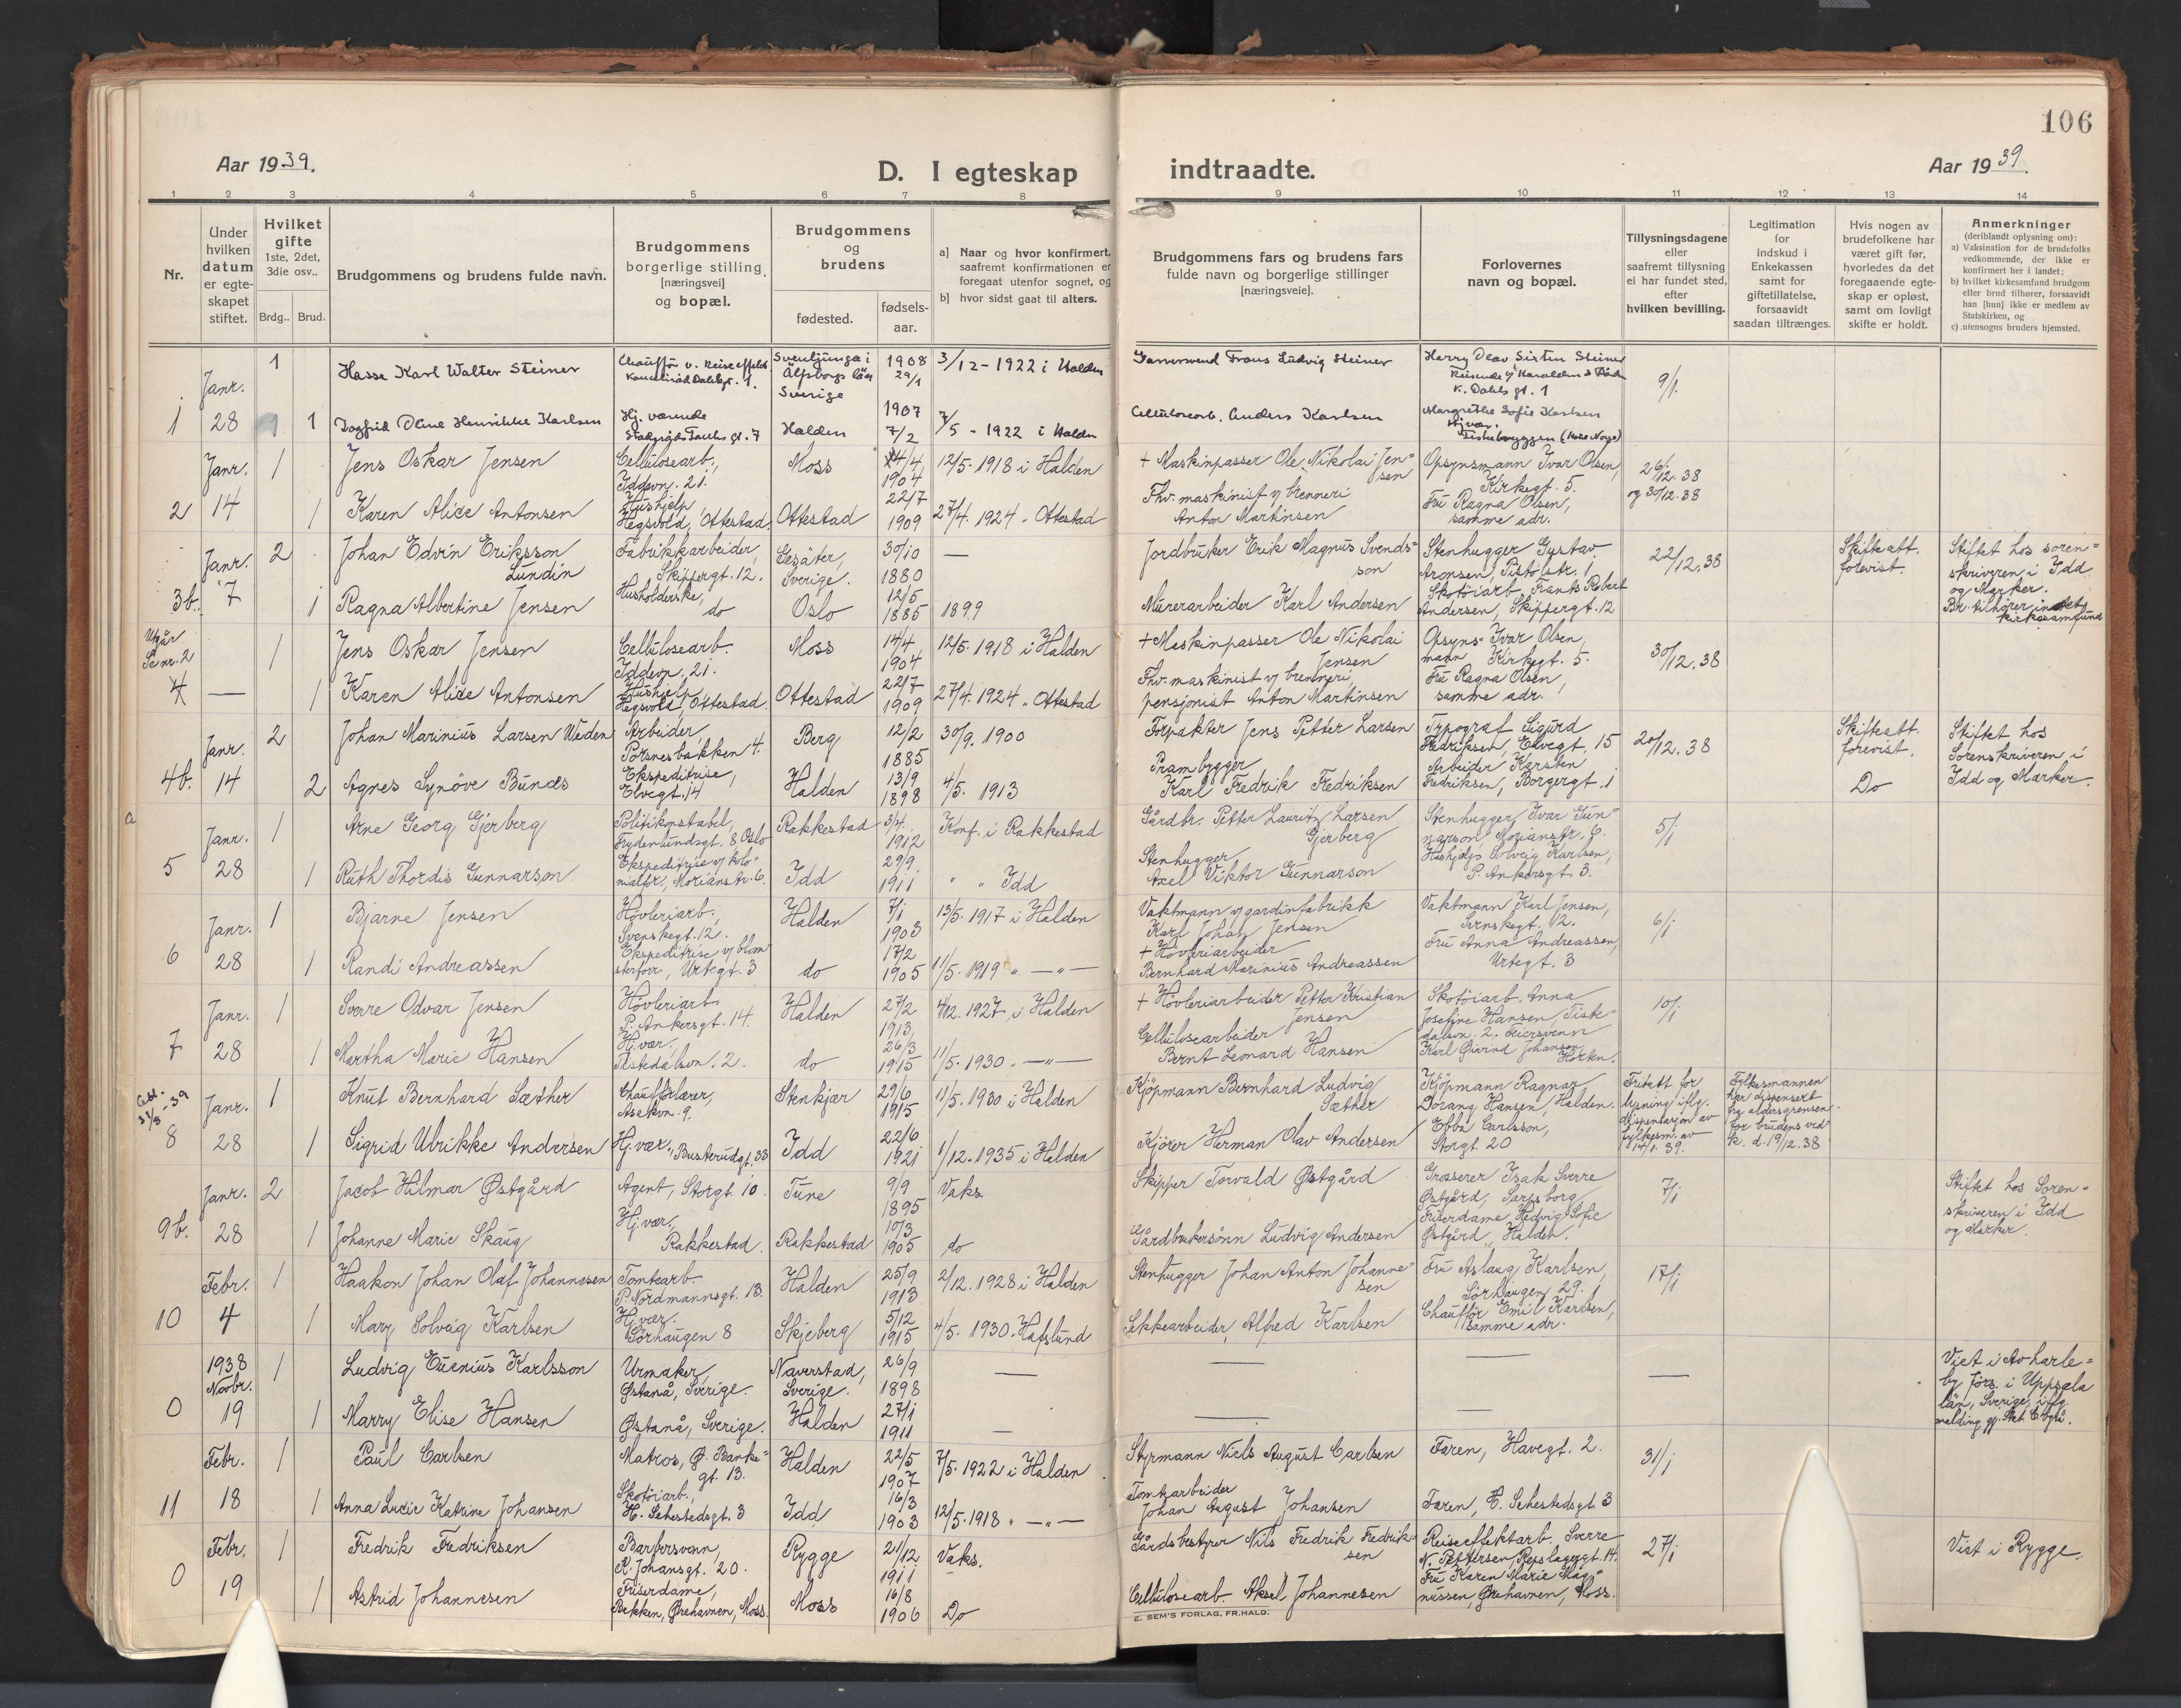 106
Aar 1939.
D. I egteskap
indtraadte.
Aar 1939
1 2 3 4 5 6 7 8 9 10 11 12 13 14
Nr.
Under hvilken datum er egteskapet stiftet.
Hvilket gifte 1ste, 2det, 3die osv..
Brdg.. Brud.
Brudgommens og brudens fulde navn.
Brudgommens borgerlige stilling [næringsvei] og bopæl.
Brudgommens og brudens
fødested.
fødsels-aar.
a] Naar og hvor konfirmert, saafremt konfirmationen er foregaat utenfor sognet, og
b] hvor sidst gaat til alters.
Brudgommens fars og brudens fars fulde navn og borgerlige stillinger [næringsveie].
Forlovernes navn og bopæl.
Tillysningsdagene eller saafremt tillysning ei har fundet sted, efter hvilken bevilling.
Legitimation for indskud i Enkekassen samt for giftetillatelse, forsaavidt saadan tiltrænges.
Hvis nogen av brudefolkene har været gift før, hvorledes da det foregaaende egteskap er opløst, samt om lovligt skifte er holdt.
Anmerkninger (deriblandt oplysning om):
a) Vaksination for de brudefolks vedkommende, der ikke er konfirmert her i landet;
b) hvilket kirkesamfund brudgom eller brud tilhører, forsaavidt han [hun] ikke er medlem av Statskirken, og
c) utensogns bruders hjemsted.
1 Janr. 28
1 Hasse Karl Walter Steiner
Svenljunga i Älfsborgs län Sverige
1908 29/1
3/12 - 1922 i Halden
Garversvend Frans Ludvig Steiner
K. Dahls gt. 1
9/1.
1 Dagfrid Oline Henrikke Karlsen
Hj. værende
Halden
1907 7/2
7/5 - 1922 i Halden
Cellulosearb. Anders Karlsen
Margrethe Sofie Karlsen
Hj. vær.
2 Janr. 14
1 Jens Oskar Jensen
Cellulosearb., Iddevn. 21.
Moss
14/4 1904
12/5. 1918 i Halden
+ Maskinpasser Ole Nikolai Jensen
Opsynsmann Ivar Olsen, Kirkegt. 5.
26/12. 38 og 30/12. 38
1 Karen Alice Antonsen
Hushjelp Hegsvold, Ottestad
Ottestad
22/7 1909
27/4. 1924 " Ottestad
Fhv. maskinist v/ brenneri Anton Martinsen
Fru Ragna Olsen, samme adr.
3b. Janr. 7
2 Johan Edvin Eriksson Lundin
Fabrikkarbeider, Skippergt. 12.
Gesäter, Sverige.
30/10 1880
—
Jordbruker Erik Magnus Svendsson
Stenhugger Gustav Aronsen, Pistolstr. 1
22/12. 38
Skifteatt. forevist.
Stiftet hos sorenskriveren i Idd og Marker.
Br. tilhører intet kirkesamfund
1 Ragna Albertine Jensen
Husholderske, do
Oslo
12/5 1885
1899
Murerarbeider Karl Andersen
Skotöiarb. Frants Robert Andersen, Skippergt. 12
Utgår Se nr. 2
4 —
1 Jens Oskar Jensen
Cellulosearb. Iddevn. 21.
Moss
14/4 1904
12/5. 1918 i Halden
+ Maskinpasser Ole Nikolai Jensen
Opsynsmann Ivar Olsen, Kirkegt. 5.
30/12. 38
1 Karen Alice Antonsen
Hushjelp, Hegsvold, Ottestad.
Ottestad
22/7 1909
27/4. 1924 " Ottestad
Fhv. maskinist v/ brenneri, pensjonist Anton Martinsen
Fru Ragna Olsen, samme adr.
4b. Janr. 14
2 Johan Marinius Larsen Weden
Arbeider, Porsnesbakken 4.
Berg
12/2 1885
30/9. 1900
Forpakter Jens Petter Larsen
Typograf Sigurd Fredriksen, Elvegt. 15
20/12. 38
Skifteatt. forevist.
Stiftet hos Sorenskriveren i Idd og Marker.
2 Agnes Synöve Bundes
Ekspeditrise, Elvegt. 14
Halden
13/9 1898
4/5. 1913
Prambygger Karl Fredrik Fredriksen
Arbeider Karsten Fredriksen, Borgergt. 1
Do
5 Janr. 28
1 Arne Georg Gjerberg
Politikonstabel, Frydenlundsgt. 8 Oslo
Rakkestad
3/4. 1912
Konf. i Rakkestad
Gårdbr. Petter Lauritz Larsen Gjerberg
Stenhugger Ivar Gunnarson, Morianstr. 6.
5/1
1 Ruth Thordis Gunnarson
Ekspeditrise v/ kolonialfor., Morianstr. 6.
Idd
29/9 1911
" " Idd
Stenhugger Axel Viktor Gunnarson
Hushjelp Solveig Karlsen, P. Ankersgt. 3.
6 Janr. 28
1 Bjarne Jensen
Høvleriarb., Svenskegt. 12.
Halden
7/1 1903
13/5. 1917 i Halden
Vaktmann v/ gardinfabrikk Karl Johan Jensen
Vaktmann Karl Jensen, Svenskegt. 12.
6/1
1 Randi Andreassen
Ekspeditrise v/ blomsterforr., Urtegt. 3
do
17/2 1905
11/5. 1919 " — " —
+ Høvleriarbeider Bernhard Marinius Andreassen
Fru Anna Andreassen, Urtegt. 3
7 Janr. 28
1 Sverre Odvar Jensen
Høvleriarb. P. Ankersgt. 14.
Halden
27/2 1913,
4/12. 1927, i Halden
+ Høvleriarbeider Petter Kristian Jensen
Skotöiarb. Anna Josefine Hansen, Tistedalsvn. 2.
10/1
1 Martha Marie Hansen
Hj. vær. Tistedalsvn. 2.
do
26/3 1915
11/5. 1930 — " —
Cellulosearbeider Bernt Leonard Hansen
Feiersvenn Karl Øivind Johansen Horten.
8 Janr. 28
1 Knut Bernhard Sæther
Chauffførlærer, Asakvn. 9.
Stenkjær
29/6 1915
11/5. 1930 i Halden
Kjöpmann Bernhard Ludvig Sæther
Kjöpmann Ragnar Dorang Hansen, Halden.
Fritatt for lysning iflg. dispensasjon av fylkesm. av 14/1. 39.
Fylkesmannen har dispensert fra aldersgrensen for brudens ved k. d. 19/12. 38
1 Sigrid Ulrikke Andersen
Hj. vær., Busterudgt. 33
Idd
22/6 1921
1/12. 1935 i Halden
Kjörer Herman Olav Andersen
Ebba Carlsson, Storgt. 20
9b. Janr. 28
2 Jacob Hilmar Østgård
Agent, Storgt. 10.
Tune
9/9 1895
Vaks.
Skipper Torvald Østgård
Grosserer Isak Sverre Østgård, Sarpsborg
7/1
Stiftet hos Sorenskriveren i Idd og Marker.
1 Johanne Marie Skaug
Hj. vær., Rakkestad.
Rakkestad
10/3 1905
do
Gårdbrukersönn Ludvig Andersen
Friserdame Hedvig Sofie Østgård, Halden.
10 Febr. 4
1 Haakon Johan Olaf Johannesen
Tomtearb. P. Nordmannsgt. 13.
Halden
25/9 1913
2/12. 1928 i Halden
Stenhugger Johan Anton Johannesen
Fru Aslaug Karlsen, Sörhaugen 29.
17/1
1 Mary Solveig Karlsen
Hj. vær. Sörhaugen 8
Skjeberg
5/12 1915
4/5. 1930. Hafslund
Sekkearbeider Alfred Karlsen
Chauffør Emil Karlsen, samme adr.
0 1938 Novbr. 19
1 Ludvig Eugenius Karlsson
Urmaker, Østanå, Sverige.
Naverstad, Sverige.
26/9 1898
—
Viet i Avharleby förs. i Uppsala län, Sverige, iflg. melding
1 Marry Elise Hansen
Østanå, Sverige.
Halden
27/1 1911
—
11 Febr. 18
1 Paul Carlsen
Matros, Ø. Bankegt. 13.
Halden
22/5 1907
7/5. 1922 i Halden
Styrmann Niels August Carlsen
Faren, Havegt. 2.
31/1
1 Anna Lucie Katrine Johansen
Skotöiarb., H. Sehestedsgt. 3
Idd
16/3 1903
12/5. 1918 " — " —
Tomtearbeider Johan August Johansen
Faren, H. Sehestedsgt. 3
0 Febr. 19
1 Fredrik Fredriksen
Barbersvenn, K. Johansgt. 20.
Rygge
21/12 1911
Vaks.
Gårdsbestyrer Nils Fredrik Fredriksen
Reiseeffektarb. Sverre N. Pettersen, Repslagergt. 14.
27/1
Viet i Rygge.
1 Astrid Johannesen
Friserdame, Bekken, Ørehavnen, Moss.
Moss
16/8 1906
Do
Cellulosearb. Aksel Johannesen
Fru Karen Marie Magnussen, Ørehavnen, Moss.
E. SEM'S FORLAG, FR.HALD.